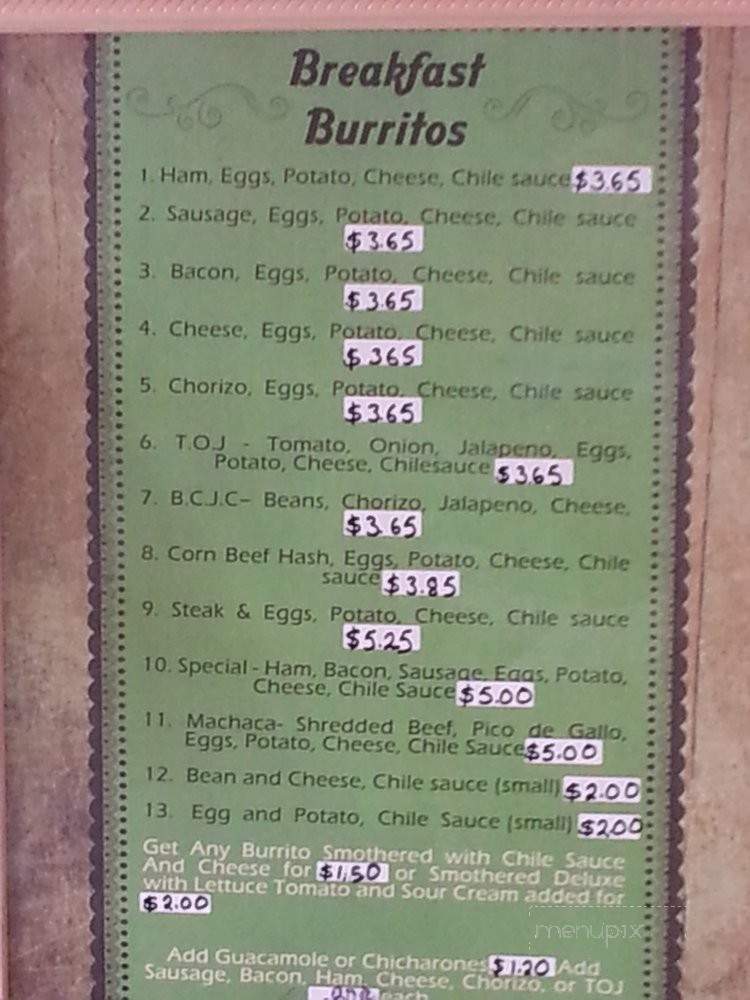 Breakfast
Burritos
1. Ham, Eggs, Potato, Cheese, Chile sauce $3.65
2. Sausage, Eggs, Potato, Cheese, Chile sauce
$3.65
3. Bacon, Eggs, Potato, Cheese, Chile sauce
$3.65
4. Cheese, Eggs, Potato, Cheese, Chile sauce
$3.65
5. Chorizo, Eggs, Potato, Cheese, Chile sauce
$3.65
6. T.O.J - Tomato, Onion, Jalapeno, Eggs,
Potato, Cheese, Chilesauce $3.65
7. B.C.J.C– Beans, Chorizo, Jalapeno, Cheese,
$3.65
8. Corn Beef Hash, Eggs, Potato, Cheese, Chile
sauce $3.85
9. Steak & Eggs, Potato, Cheese, Chile sauce
$5.25
10. Special - Ham, Bacon, Sausage, Eggs, Potato,
Cheese, Chile Sauce $5.00
11. Machaca- Shredded Beef, Pico de Gallo,
Eggs, Potato, Cheese, Chile Sauce $5.00
12. Bean and Cheese, Chile sauce (small) $2.00
13. Egg and Potato, Chile Sauce (small) $2.00
Get Any Burrito Smothered with Chile Sauce
And Cheese for $1.50 or Smothered Deluxe
with Lettuce Tomato and Sour Cream added for
$2.00
menupix
Add Guacamole or Chicharones $1.20 Add
Sausage, Bacon, Ham, Cheese, Chorizo, or TOJ
each